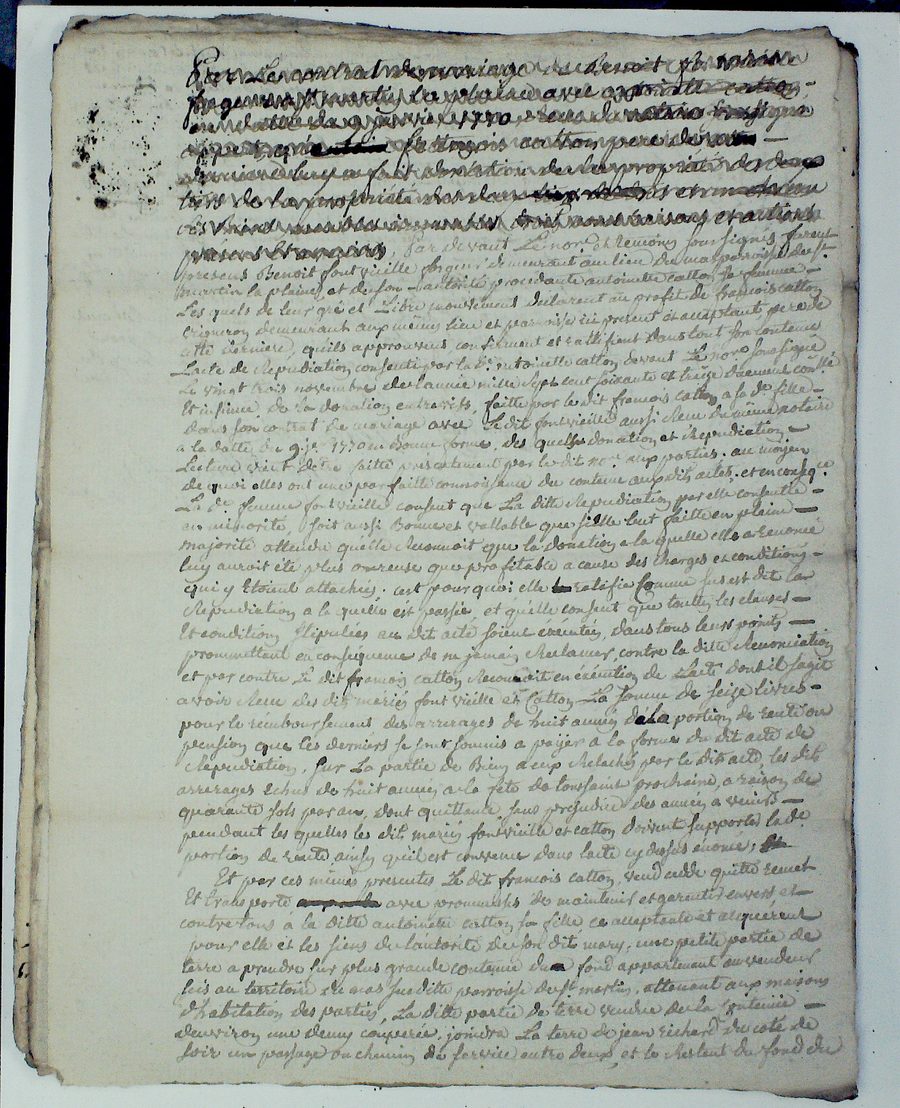 Par Le contrat de mariage de benoit fontvieille
forgeur a st martin la plaine avec antoinette catton
en datte du 9 janvier 1770, recu du notaire soussigné
françois catton pere de
derniere luy a fait donnation de la propriété de deux
tiers de la propriété
noms raisons et actions
Par devant Le nore et temoins soussignés furent
presens Benoit fontvieille forgeur demeurant au lieu du mas parroisse de st
martin la plaine, et de son autorité procedante antoinette catton sa femme
Les quels de leur gré et Libre mouvement declarent au profit de françois catton
vigneron demeurant aux mêmes lieu et parroisse ici present et acceptant, pere de
cette derniere, quils approuvent confirment et rattifient dans tout son contenu
Lacte de Repudiation consenti par la de antoinette catton devant Le nore soussigné
Le vingt trois novembre de lannée mille sept cent soixante et treize duement conllé
Et insinué, de La donation entrevifs, faitte par le dit francois catton a sa de fille
dans son contrat de mariage avec Le dit fontvieille aussi Recu du même notaire
a la datte du 9 jer 1770 en bonne forme, des quelles donation et Repudiation
Lecture vient d'etre faitte presentement par le dit nore aux parties, au moyen
de quoi elles ont une parfaitte connoissance du contenu aux dits actes, et en conseqce
La de femme fontvieille consent que La ditte Repudiation par elle consentie
en minorité, soit aussi Bonne et vallable que si elle leut faitte en pleine
majorité attendu quelle Reconnoit que la donation a la quelle elle a Renoncé
luy auroit été plus onereuse que profitable a cause des charges et conditions
qui y Etoient attachées, cest pourquoi elle ratifie comme sus est dit la
Repudiation a la quelle est passée et quelle consent que touttes les clauses
Et conditions stipulées au dit acte soient éxécutées, dans tous leurs points
promettant en consequence de ne jamais Reclamer, contre la ditte Renonciation
et par contre Le dit françois catton Reconnoit en éxécution de Lacte dont il sagit
avoir Recu des dits mariés fontvieille et Catton La somme de seize livres
pour le remboursement des arrerages de huit années de La portion de rente ou
pension que les derniers se sont soumis a payer a la forme du dit acte de
Repudiation, sur La partie de Bien a eux Relachés par le dit acte, les dits
arrerages Echus de huit années a la fête de toussaint prochaine, a raison de
quarante sols par an, dont quittance, sans prejudice des années a venir
pendant les quelles les dits mariés fontvieille et catton doivent supporter la de
portion de rente ainsy quil est convenu dans lacte cy dessus enoncé;
Et par ces mêmes presentes Le dit francois catton, vend cede quitte remet
Et transporte avec promesses de maintenir et garentir envers et
contre tous à la ditte antoinette catton sa fille ce acceptante et acquérent
pour elle et les siens de lautorité de son dit mary, une petite partie de
terre a prendre sur plus grande contenue du fond appartenant au vendeur
sis au territoire du mas susditte parroisse de st martin, attenant aux maisons
d'habitation des parties, La ditte partie de terre vendue de la contenue
denviron une demy couperée, joindra La terre de jean richard du coté de
soir un passage ou chemin de service entre deux, et le Restent du fond du